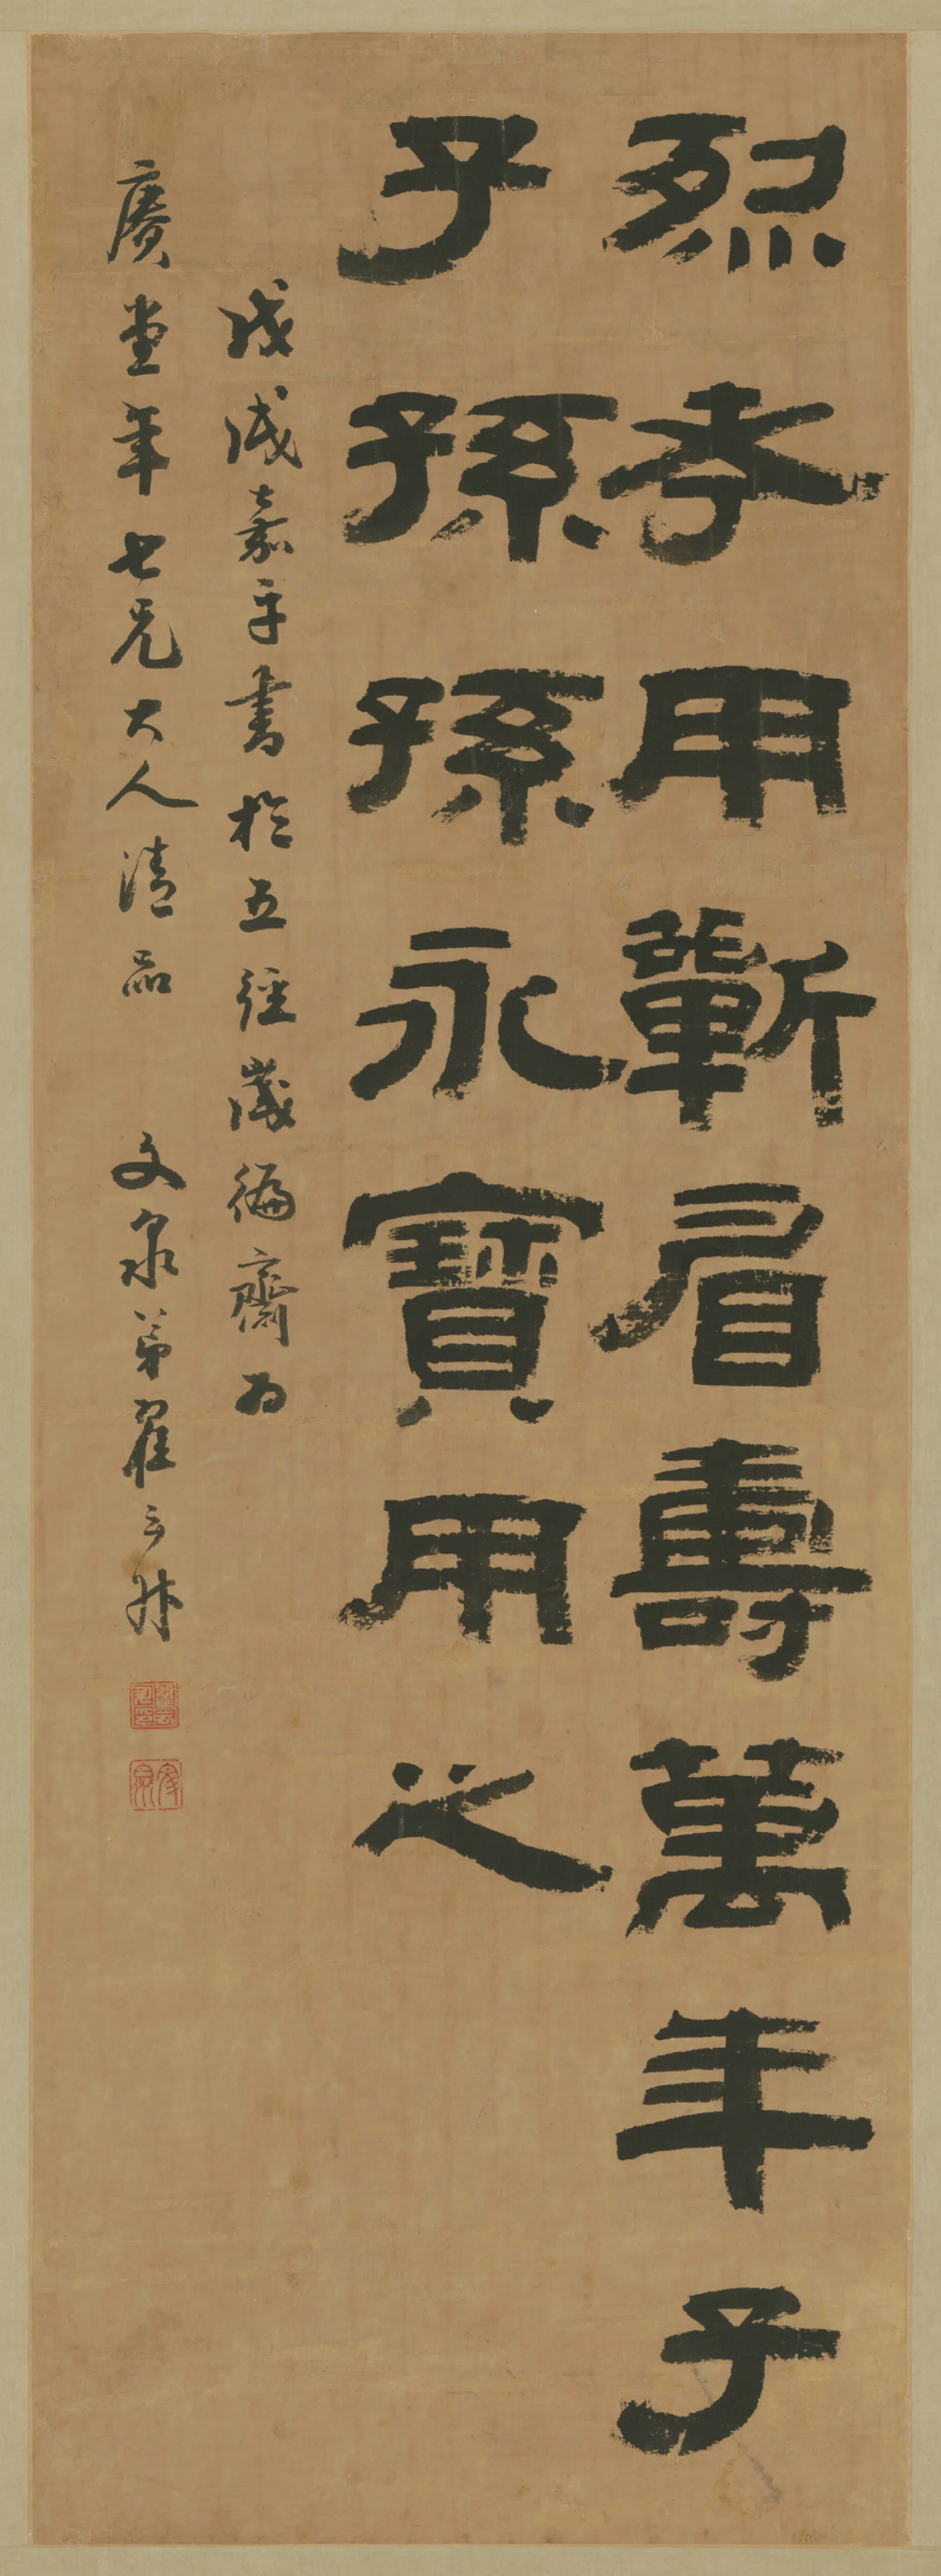 烈考用蘄眉壽萬年子
子孫孫永寶用之
戊戌嘉平書於五經歲徧齋為
賡堂年七兄大人清品 文泉弟翟云升